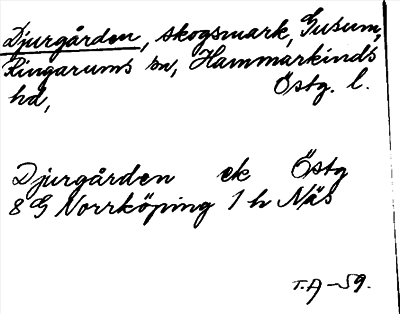 Djurgården, skogsmark, Gusum,
Ringarums sn, Hammarkinds
hd, Östg. l.
Djurgården ek Östg
8 G Norrköping 1 h Näs
T.A-59.